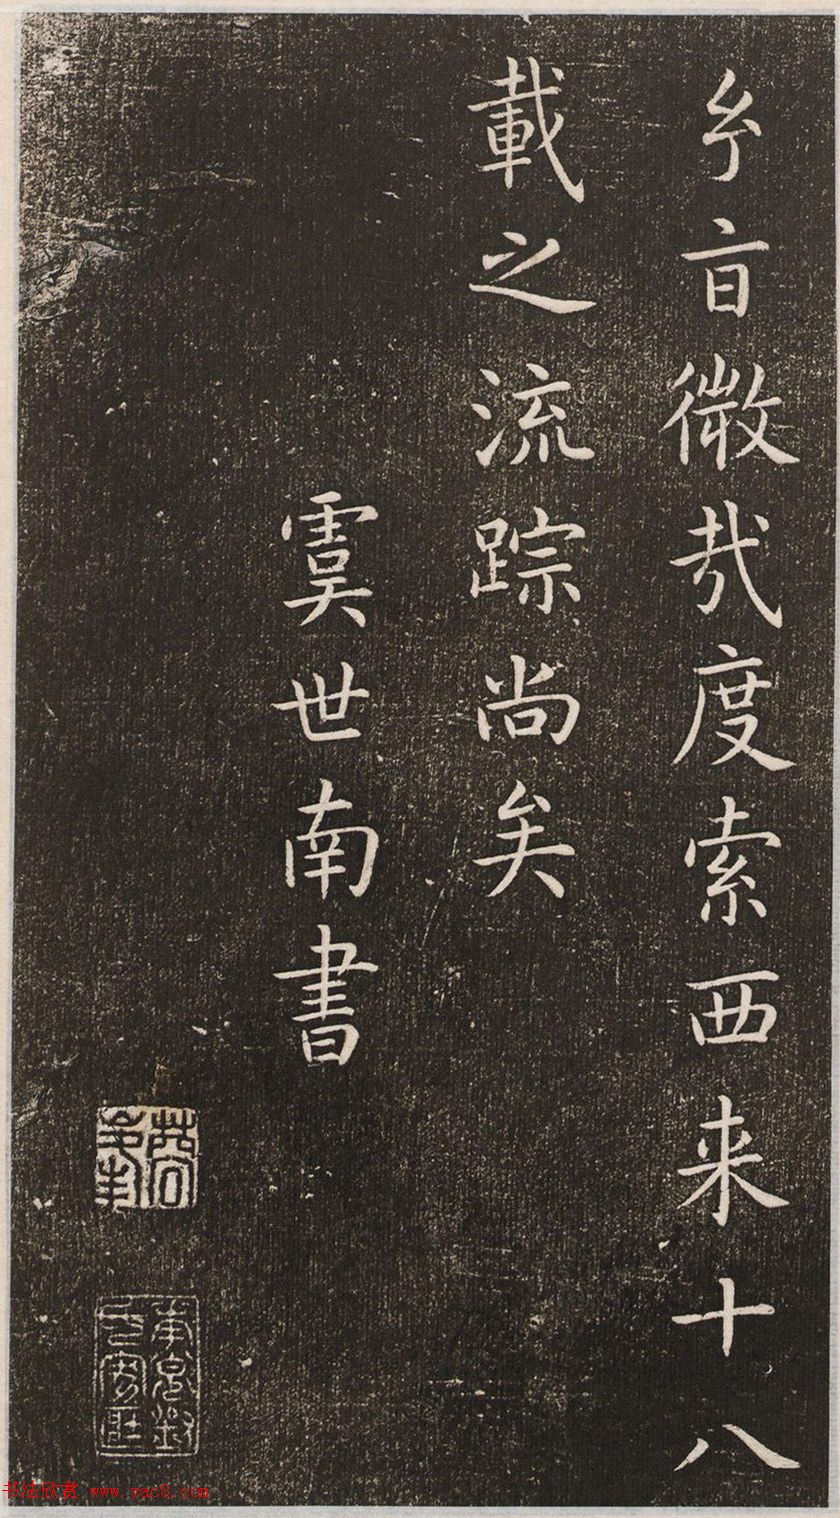 旨微哉度索西来十八
載之流踪尚矣
虞世南書
书法欣赏 www.yac8.com